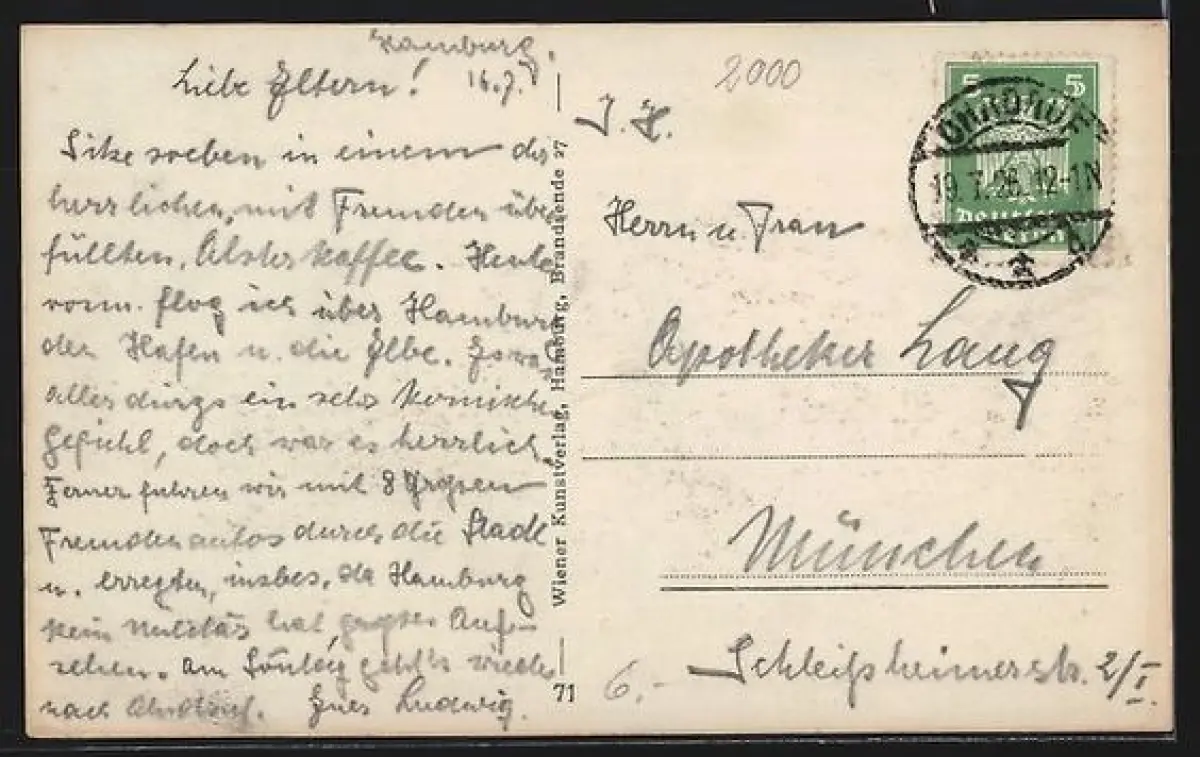 Hamburg,
16.7.
Liebe Eltern!
Sitze soeben in einem der
herrlichen, mit Fremden über
füllten, Alsterkaffee. Heute
vorm. flog ich über Hamburg
den Hafen u. die Elbe. Es war
allerdings ein sehr komisches
Gefühl, doch war es herrlich.
Ferner fuhren wir mit 8 großen
Fremdenautos durch die Stadt
u. erregten, insbes. da Hamburg
kein Militär hat, großes Auf-
sehen. Am Sonntag geht's wieder
nach Ohrdruf. Euer Ludwig.
Wiener Kunstverlag, Hamburg, Brandsende 27
71
2000
J. H.
Herrn u. Frau
Apotheker Lang
München
Schleißheimerstr. 2/I.
6.-
5 5
Deutsches
Reich
OHRDRUF
19.7.26. 12-1N